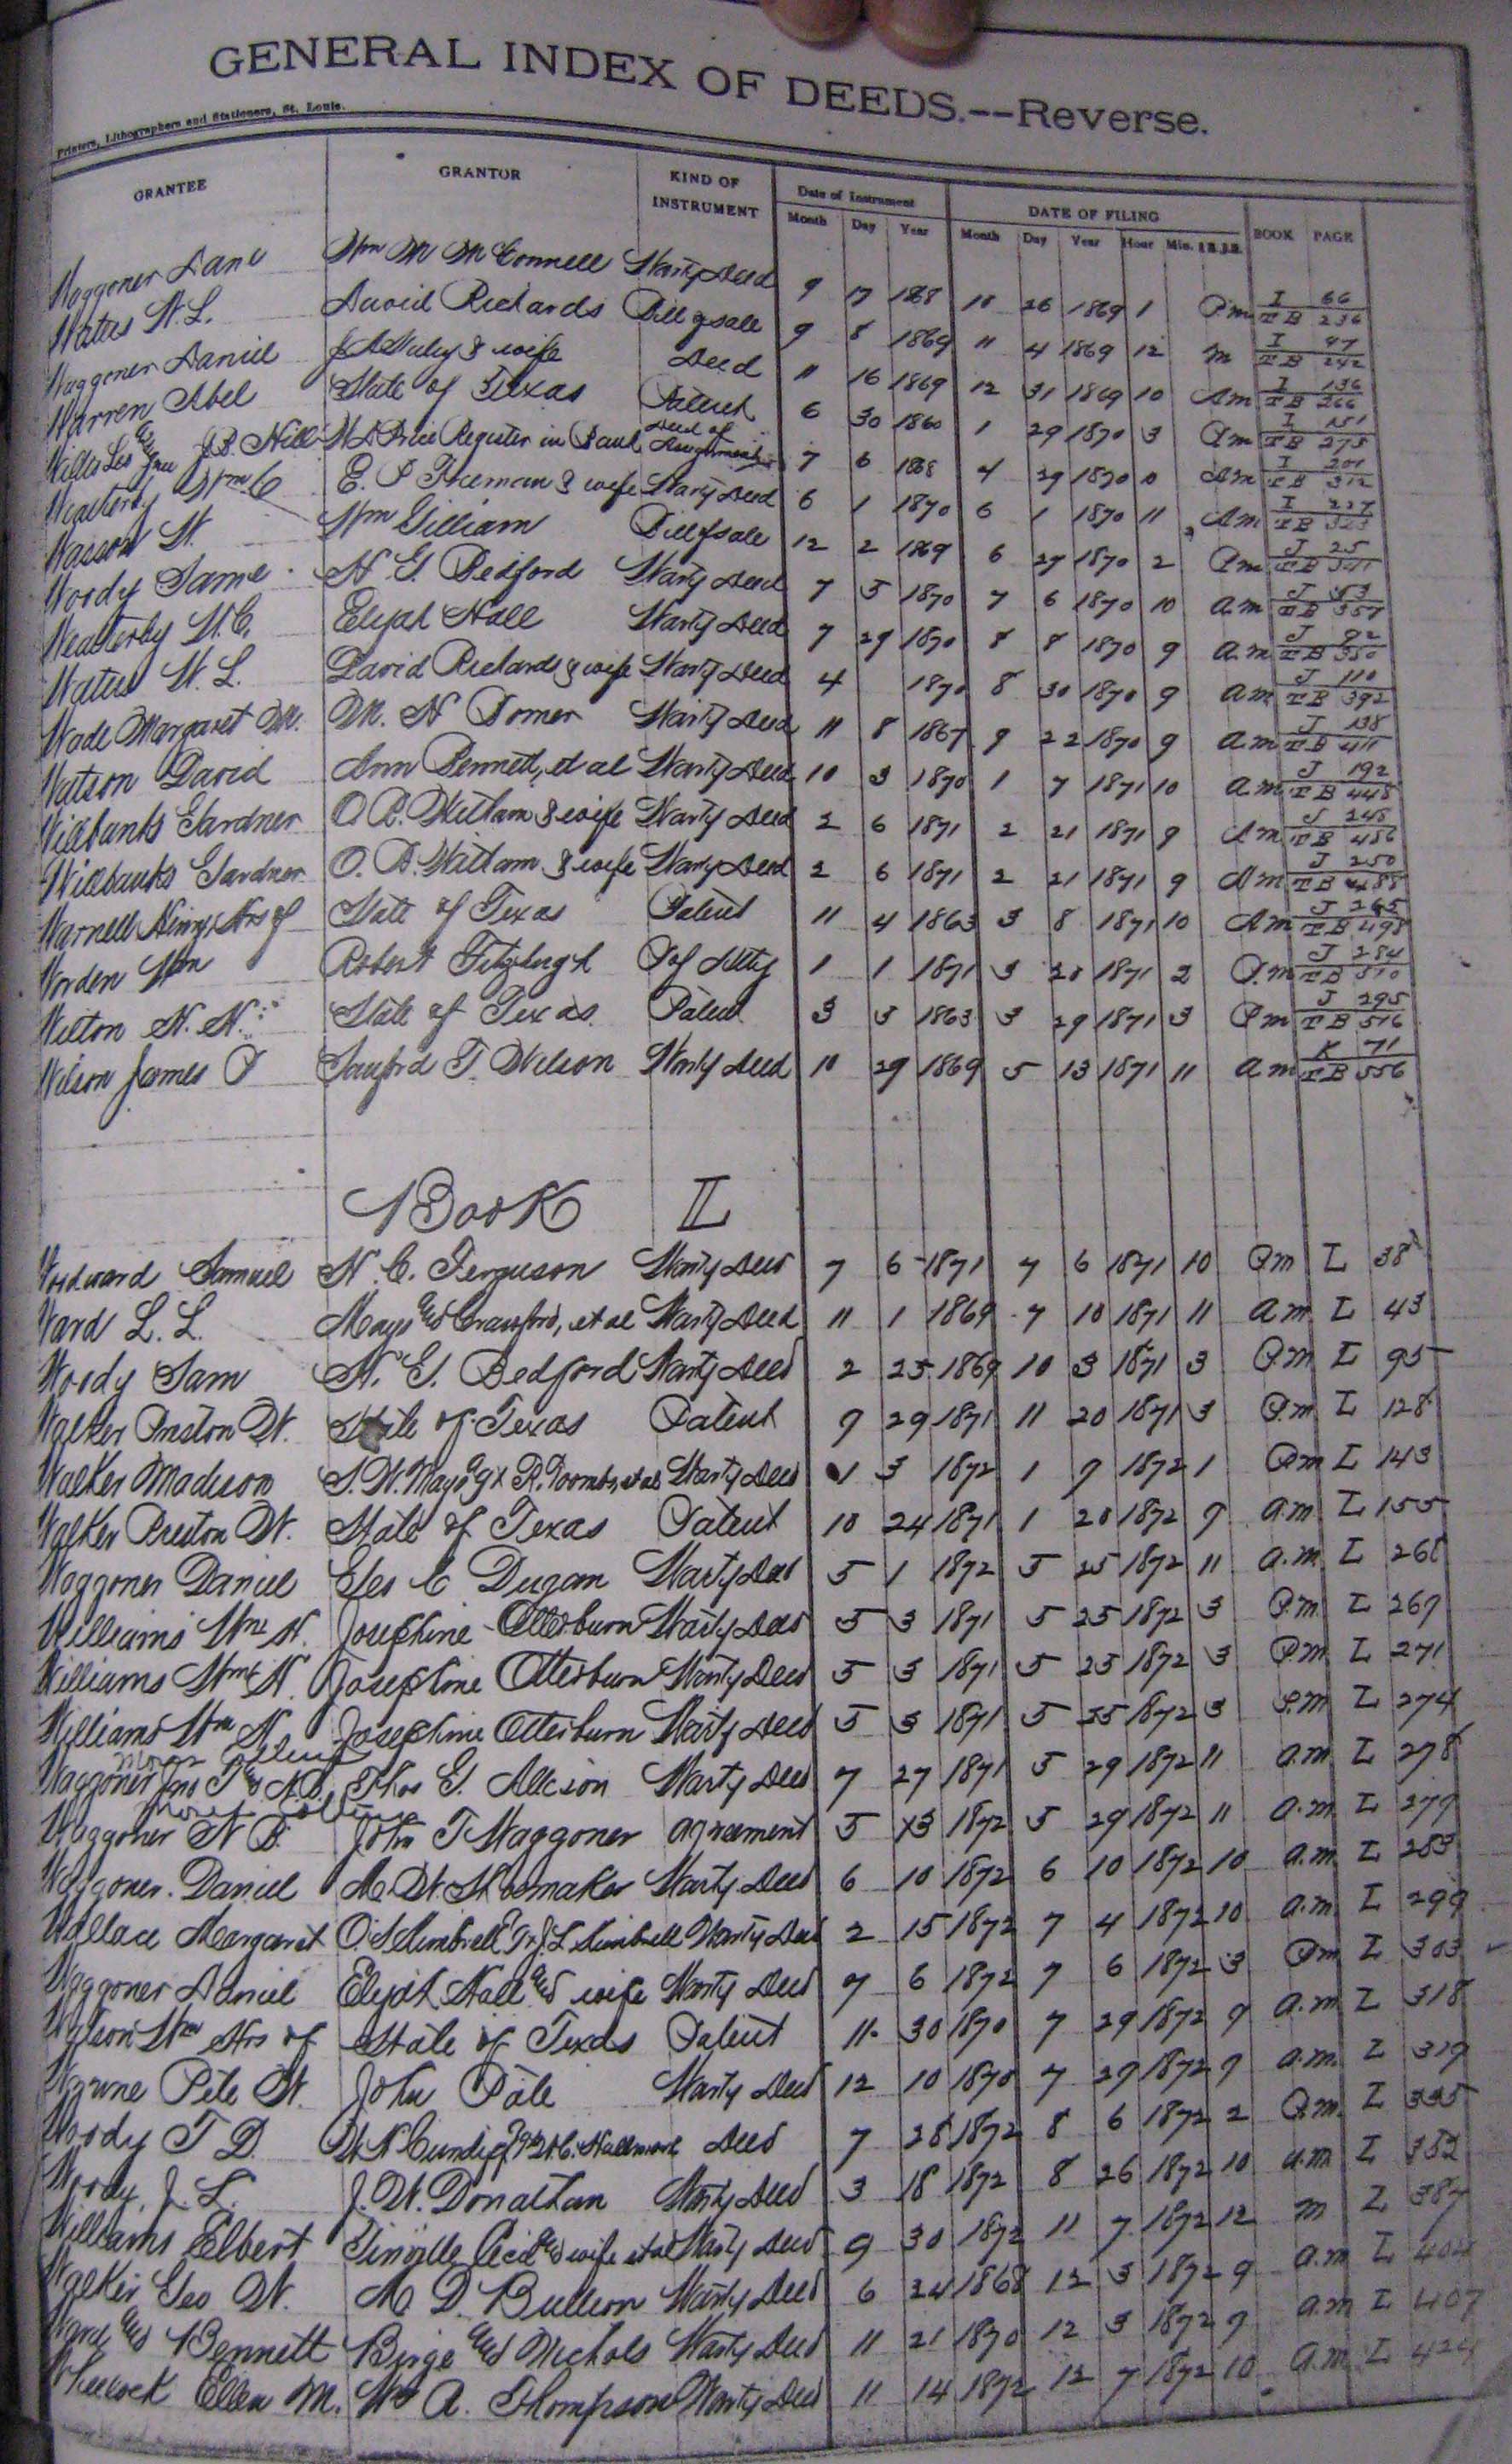 GENERAL INDEX OF DEEDS.--Reverse.
Printers, Lithographers and Stationers, St. Louis.
GRANTEE GRANTOR KIND OF INSTRUMENT Date of Instrument DATE OF FILING BOOK PAGE
Month Day Year Month Day Year Hour Min.
Waggoner Wm M McConnell Warty Deed 9 17 1868 10 26 1869 1 Pm I 66 TB 236
W. L. David Richards Bill of sale 9 8 1869 11 4 1869 12 m I 97 TB 242
Waggoner Daniel & wife Deed 11 16 1869 12 31 1869 10 Am I 136 TB 266
Warren Abel State of Texas Patent 6 30 1860 1 29 1870 3 Pm I 151 TB 275
J.B. Hill Register in Deed of 7 6 1868 4 29 1870 10 Am I 201 TB 312
Weatherby Wm C E. P Freeman & wife Warty Deed 6 1 1870 6 1 1870 11 Am I 227 TB
Wasson W. Wm Gilliam Bill of sale 12 2 1869 6 27 1870 2 Pm J 25 TB 341
Woody Same H. G. Bedford Warty Deed 7 5 1870 7 6 1870 10 am J 53 TB 357
Weatherby W. C. Elijah Hall Warty Deed 7 29 1870 8 8 1870 9 a.m J 92 TB
W. L. David Richards & wife Warty Deed 4 1870 8 30 1870 9 am J 110 TB 392
Wade Margaret M. M. H Warty Deed 11 8 1867 9 22 1870 9 am J 138 TB 411
Watson David Ann Bennett, et al Warty Deed 10 3 1870 1 7 1871 10 am J 192 TB 448
Willbanks Gardner O. B. Witham & wife Warty Deed 2 6 1871 2 21 1871 9 Am J 248 TB 486
Willbanks Gardner O. B. Witham & wife Warty Deed 2 6 1871 2 21 1871 9 Am J 250 TB 488
Warnell Henry Hrs of State of Texas Patent 11 4 1863 3 8 1871 10 Am J 265 TB 498
Worden Wm Robert Fitzhugh P of Atty 1 1 1871 3 20 1871 2 P.m J 284 TB 510
Wilton N. N. State of Texas Patent 3 3 1863 3 29 1871 3 Pm J 295 TB 516
Wilson James P Sanford T. Wilson Warty Deed 10 29 1869 5 13 1871 11 am K 71 TB 556
Book L
Woodward Samuel H. C. Ferguson Warty Deed 7 6 1871 7 6 1871 10 Pm L 38
Ward L. L. Mays and Crawford, et al Warty Deed 11 1 1869 7 10 1871 11 am L 43
Woody Sam H. G. Bedford Warty Deed 2 25 1869 10 3 1871 3 P.m L 95
Walker Preston W. State of Texas Patent 9 29 1871 11 20 1871 3 P.m L 128
Walker Madison S. W. Mays Agt R. Toombs, et al Warty Deed 1 3 1872 1 9 1872 1 Pm L 143
Walker Preston W. State of Texas Patent 10 24 1871 1 20 1872 9 a.m L 155
Waggoner Daniel C Dugan Warty Deed 5 1 1872 5 25 1872 11 a.m. L 268
Williams Wm H. Josephine Otterburn Warty Deed 5 3 1871 5 25 1872 3 P.m. L 269
Williams Wm H. Josephine Otterburn Warty Deed 5 3 1871 5 25 1872 3 P.m L 271
Williams Wm H. Josephine Otterburn Warty Deed 5 3 1871 5 25 1872 3 P.m L 274
Waggoner Jno T and N.B. Thos G. Allison Warty Deed 7 27 1871 5 29 1872 11 a.m L 278
Waggoner N B. John T Waggoner agreement 5 13 1872 5 29 1872 11 a.m. L 279
Waggoner. Daniel M. W. Shoemaker Warty Deed 6 10 1872 6 10 1872 10 a.m L 283
Wallace Margaret O. S. Kimbrell J. L Kimbrell Warty Deed 2 15 1872 7 4 1872 10 a.m. L 299
Waggoner Daniel Elijah Hall and wife Warty Deed 7 6 1872 7 6 1872 3 Pm L 303
Wilson Wm Hrs of State of Texas Patent 11 30 1870 7 29 1872 9 a.m L 318
Pete W. John Pate Warty Deed 12 10 1870 7 29 1872 9 a.m. L 319
Woody T D. W. H. Cundiff Hallmark Deed 7 28 1872 8 6 1872 2 P.m. L 335
Woody, J. L. J. W. Donathan Warty Deed 3 18 1872 8 26 1872 10 a.m L 352
Williams Elbert and wife et al Warty Deed 9 30 1872 11 7 1872 12 m L 387
Walker Geo W. M D. Bullion Warty Deed 6 24 1868 12 3 1872 9 a.m L
Ward and Bennett Birge and Nichols Warty Deed 11 21 1870 12 3 1872 9 a.m L 407
Ellen M. Wm A. Thompson Warty Deed 11 14 1872 12 7 1872 10 a.m. L 424